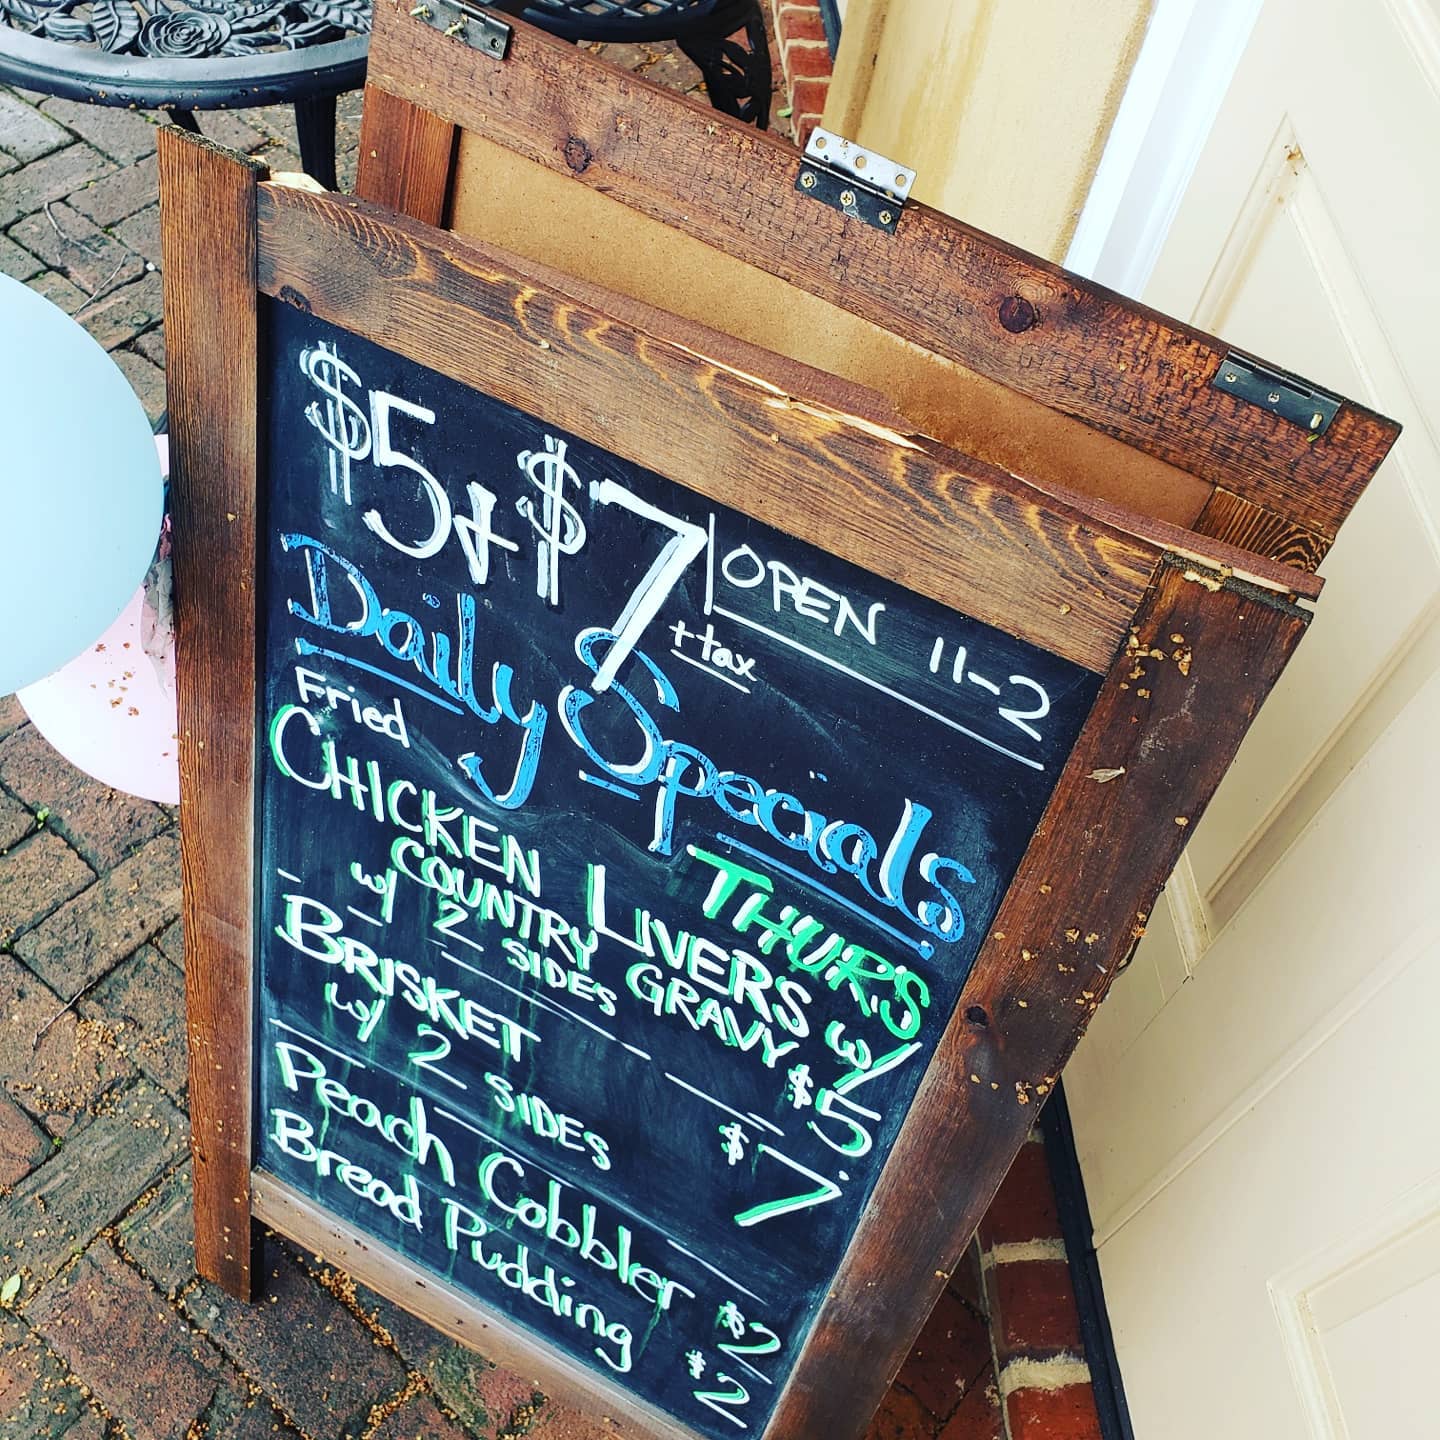 $5 & $7 OPEN 11-2
+tax
Daily Specials
THURS
Fried
CHICKEN LIVERS w/
COUNTRY GRAVY $5
w/ 2 SIDES
BRISKET $7
w/ 2 SIDES
Peach Cobbler $2
Bread Pudding $2